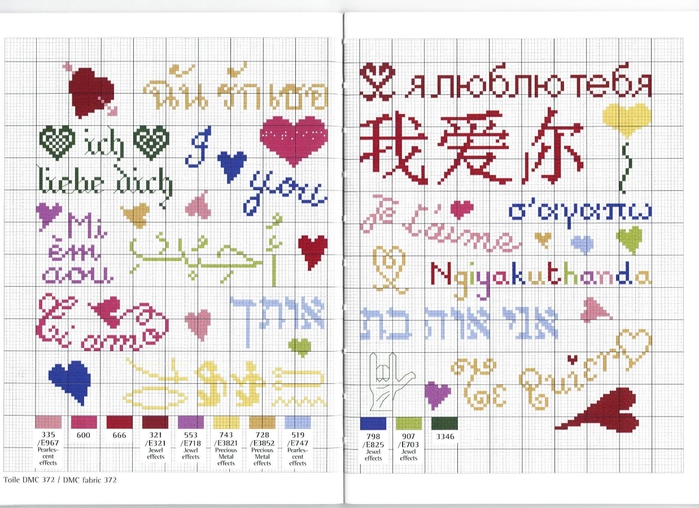 ฉันรักเธอ
ich
liebe dich
I
you
Mi
êm
aou
Ti amo
אותך
335
/E967
Pearles-
cent
effects
600
666
321
/E321
Jewel
effects
553
/E718
Jewel
effects
743
/E3821
Precious
Metal
effects
728
/E3852
Precious
Metal
effects
519
/E747
Pearles-
cent
effects
Toile DMC 372 / DMC fabric 372
я люблю тебя
我爱你
Je t'aime
σ'αγαπω
Ngiyakuthanda
אני אוה בת
Te Quiero
798
/E825
Jewel
effects
907
/E703
Jewel
effects
3346